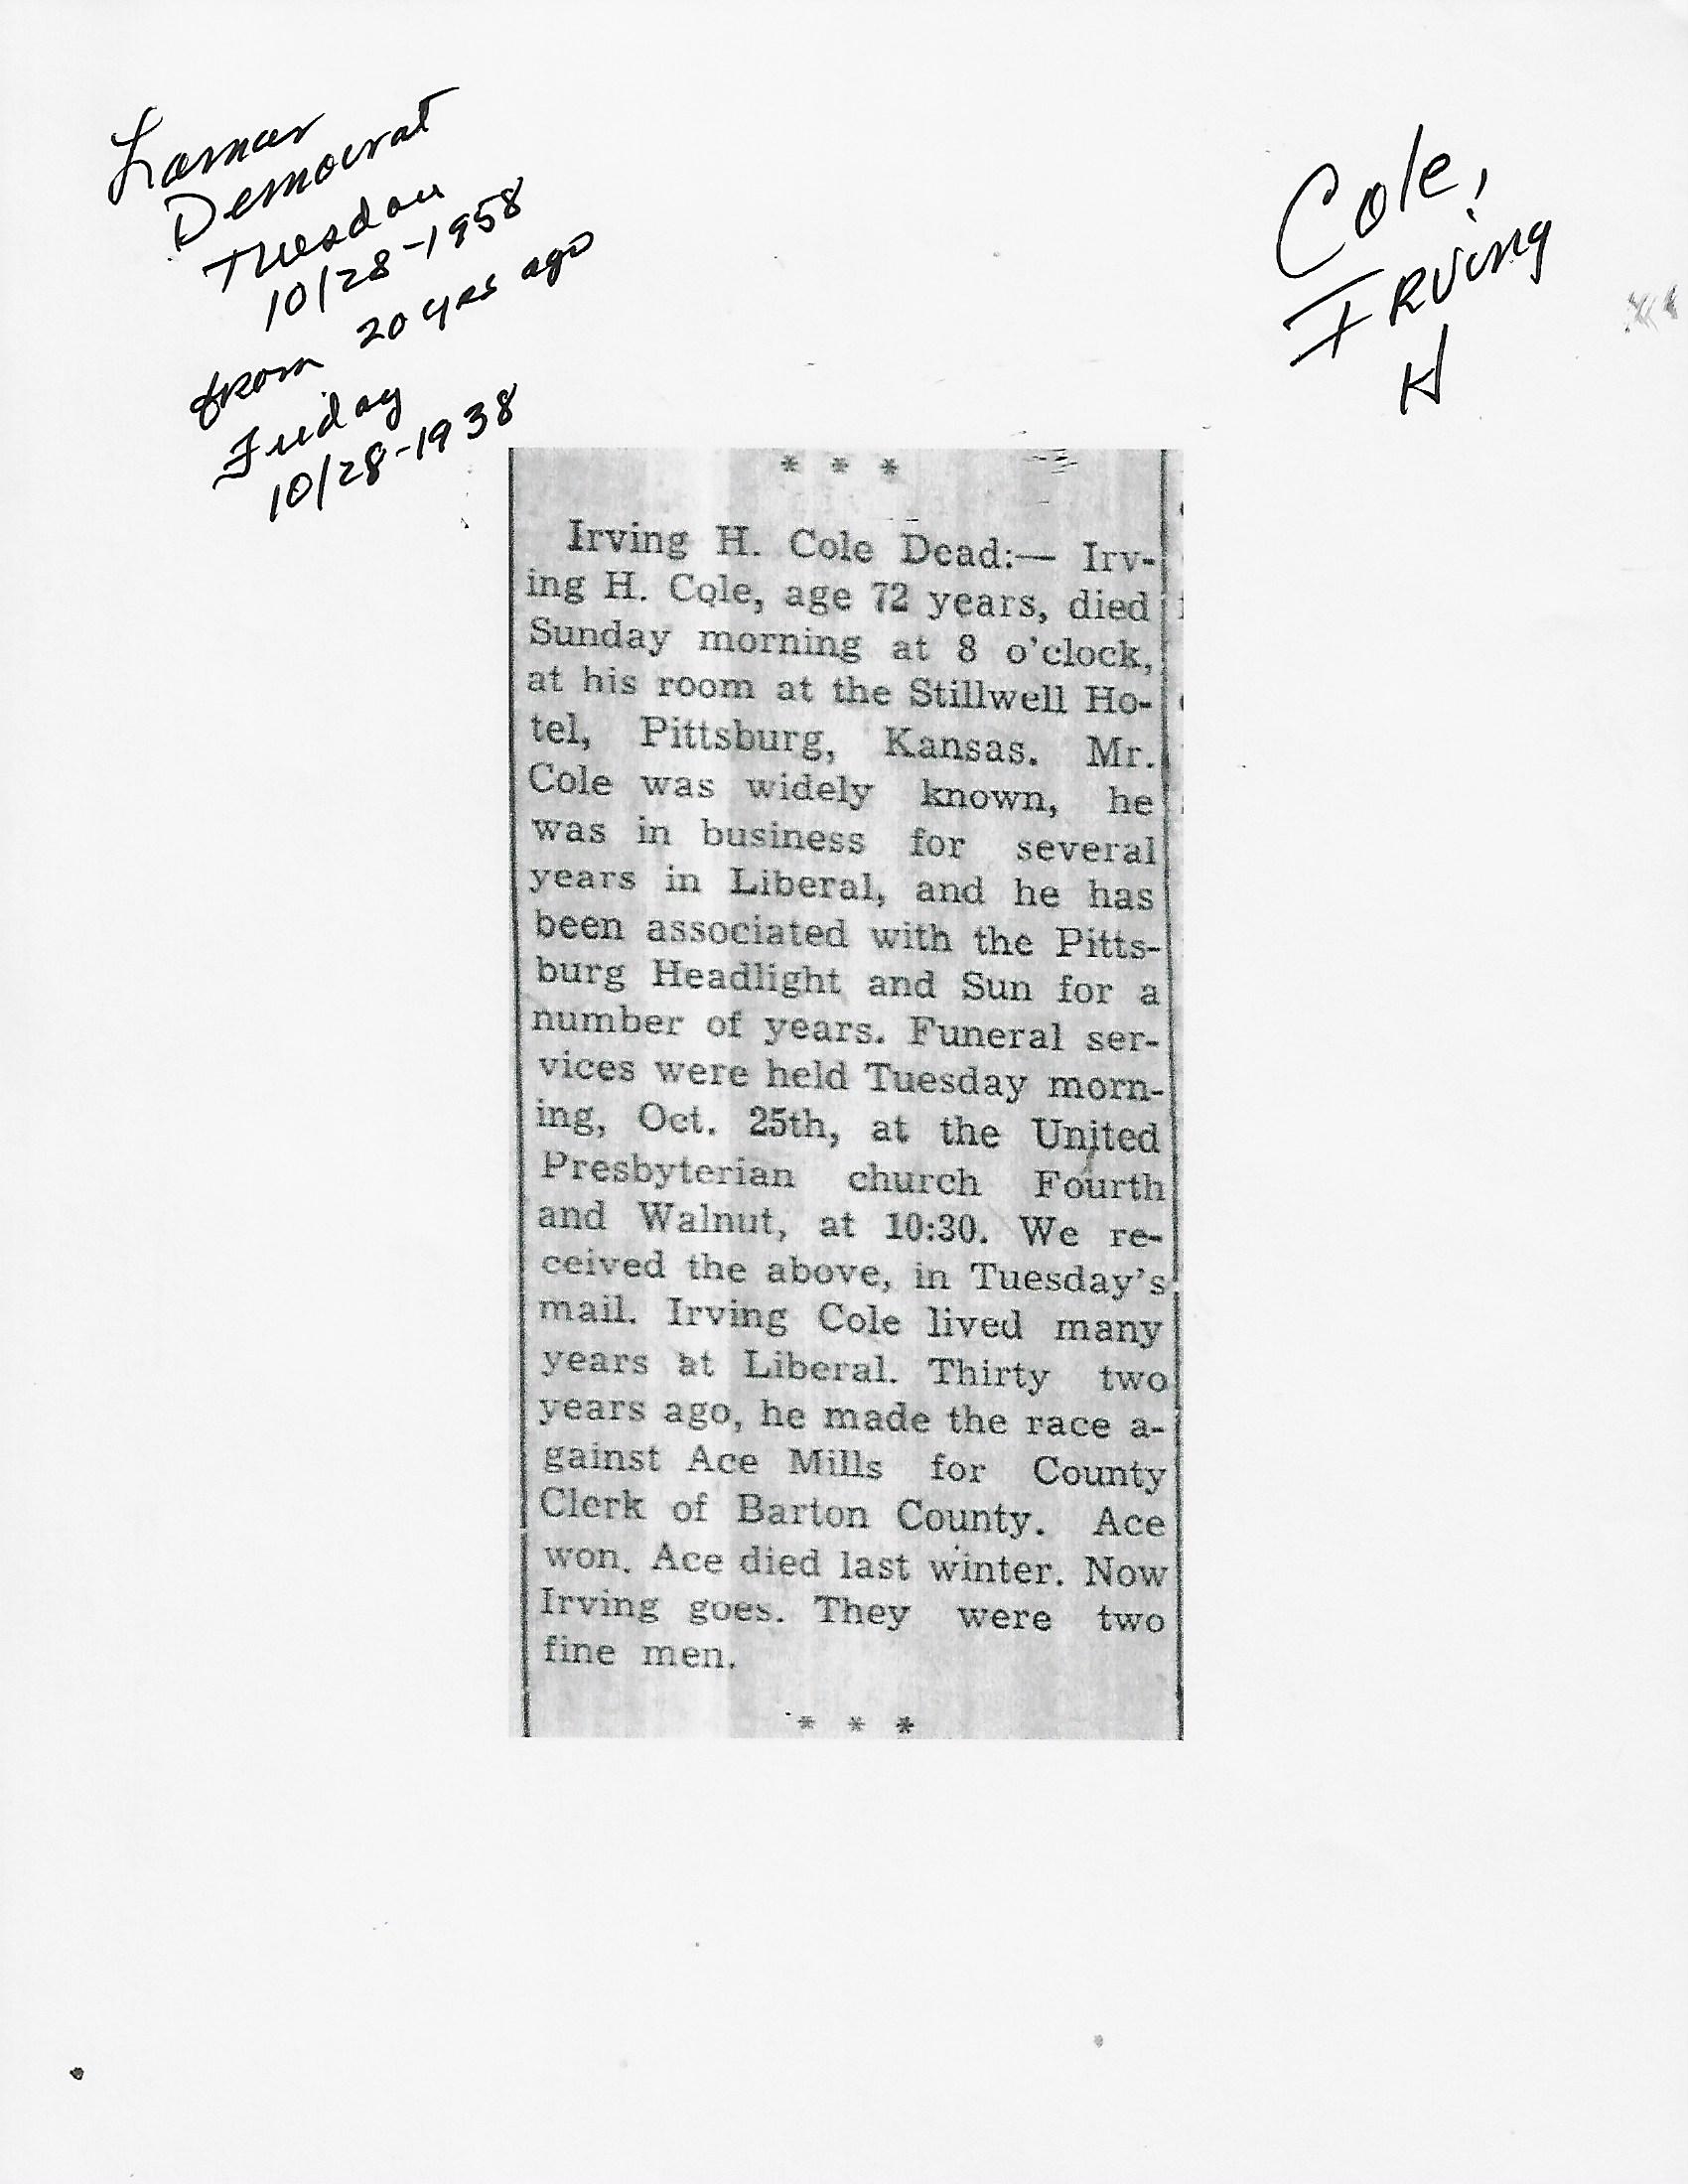 Lamar
Democrat
Tuesday
10/28-1958
from 20 yrs ago
Friday
10/28-1938
Cole,
Irving
H
* * *
Irving H. Cole Dead:— Irv-
ing H. Cole, age 72 years, died
Sunday morning at 8 o'clock,
at his room at the Stillwell Ho-
tel, Pittsburg, Kansas. Mr.
Cole was widely known, he
was in business for several
years in Liberal, and he has
been associated with the Pitts-
burg Headlight and Sun for a
number of years. Funeral ser-
vices were held Tuesday morn-
ing, Oct. 25th, at the United
Presbyterian church Fourth
and Walnut, at 10:30. We re-
ceived the above, in Tuesday's
mail. Irving Cole lived many
years at Liberal. Thirty two
years ago, he made the race a-
gainst Ace Mills for County
Clerk of Barton County. Ace
won. Ace died last winter. Now
Irving goes. They were two
fine men.
* * *